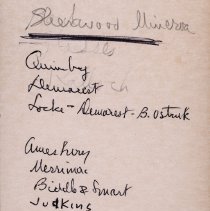 Sherwood Minerva
Quimby
Demarest
Locke - Demarest - B. Ostruk
Amesbury
Merrimac
Biddle & Smart
Judkins